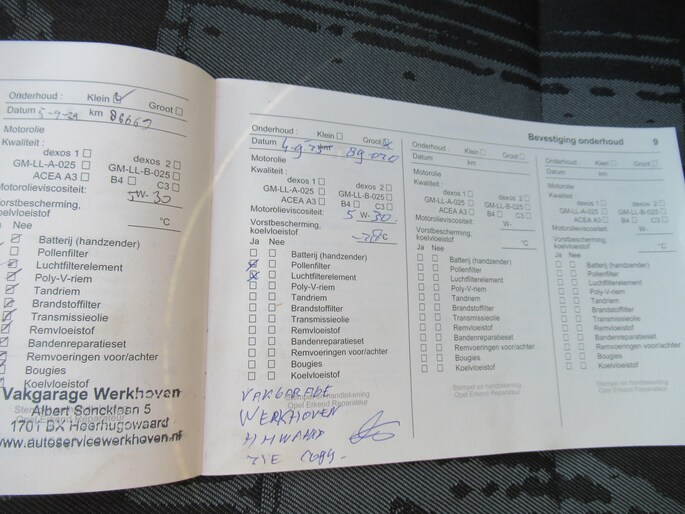 Onderhoud : Klein Groot
Datum 5-9- km 86662
Motorolie
Kwaliteit :
dexos 1 dexos 2
GM-LL-A-025 GM-LL-B-025
ACEA A3 B4 C3
Motorolieviscositeit: 5 W- 30
Vorstbescherming,
koelvloeistof °C
Ja Nee
Batterij (handzender)
Pollenfilter
Luchtfilterelement
Poly-V-riem
Tandriem
Brandstoffilter
Transmissieolie
Remvloeistof
Bandenreparatieset
Remvoeringen voor/achter
Bougies
Koelvloeistof
Vakgarage Werkhoven
Albert Soncklaan 5
1701 BX Heerhugowaard
www.autoservicewerkhoven.nl
Opel Erkend Reparateur
Onderhoud : Klein Groot
Datum 4-9 89-020
Motorolie
Kwaliteit :
dexos 1 dexos 2
GM-LL-A-025 GM-LL-B-025
ACEA A3 B4 C3
Motorolieviscositeit: 5 W- 30
Vorstbescherming,
koelvloeistof °C
Ja Nee
Batterij (handzender)
Pollenfilter
Luchtfilterelement
Poly-V-riem
Tandriem
Brandstoffilter
Transmissieolie
Remvloeistof
Bandenreparatieset
Remvoeringen voor/achter
Bougies
Koelvloeistof
Stempel en handtekening
Opel Erkend Reparateur
VAKGARAGE
WERKHOVEN
HHWAARD
ZIE
Bevestiging onderhoud 9
Onderhoud : Klein Groot
Datum km
Motorolie
Kwaliteit :
dexos 1 dexos 2
GM-LL-A-025 GM-LL-B-025
ACEA A3 B4 C3
Motorolieviscositeit: W-
Vorstbescherming,
koelvloeistof °C
Ja Nee
Batterij (handzender)
Pollenfilter
Luchtfilterelement
Poly-V-riem
Tandriem
Brandstoffilter
Transmissieolie
Remvloeistof
Bandenreparatieset
Remvoeringen voor/achter
Bougies
Koelvloeistof
Stempel en handtekening
Opel Erkend Reparateur
Onderhoud : Klein Groot
Datum km
Motorolie
Kwaliteit :
dexos 1 dexos 2
GM-LL-A-025 GM-LL-B-025
ACEA A3 B4 C3
Motorolieviscositeit: W-
Vorstbescherming,
koelvloeistof °C
Ja Nee
Batterij (handzender)
Pollenfilter
Luchtfilterelement
Poly-V-riem
Tandriem
Brandstoffilter
Transmissieolie
Remvloeistof
Bandenreparatieset
Remvoeringen voor/achter
Bougies
Koelvloeistof
Stempel en handtekening
Opel Erkend Reparateur